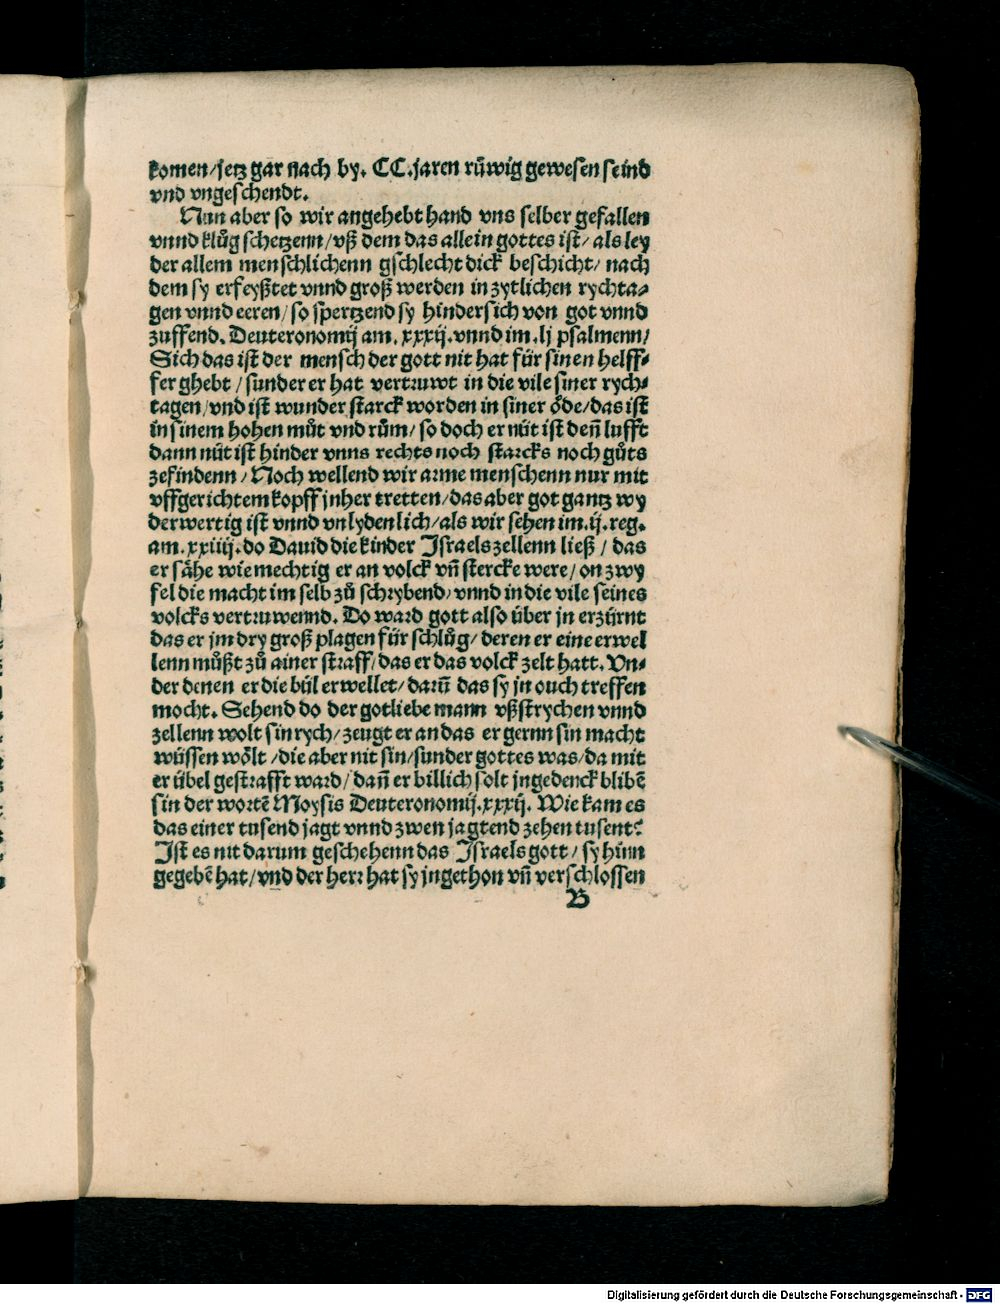 komen/jetz gar nach by. CC.jaren rüwig gewesen seind
vnd vngeschendt.
Nun aber so wir angehebt hand vns selber gefallen
vnnd klůg schetzenn/vß dem das allein gottes ist/als ley
der allem menschlichenn gschlecht dick beschicht/nach
dem sy erfeyßtet vnnd groß werden in zytlichen rychta⸗
gen vnnd eeren/so spertzend sy hindersich von got vnnd
zuffend. Deuteronomij am.xxxij.vnnd im.lj psalmenn/
Sich das ist der mensch der gott nit hat für sinen helff⸗
fer ghebt/sunder er hat vertruwt in die vile siner rych⸗
tagen/vnd ist wunder starck worden in siner öde/das ist
in sinem hohen můt vnd rům/so doch er nüt ist deñ lufft
dann nüt ist hinder vnns rechts noch starcks noch gůts
zefindenn/Noch wellend wir arme menschenn nur mit
vffgerichtem kopff jnher tretten/das aber got gantz wy
derwertig ist vnnd vnlydenlich/als wir sehen im.ij.reg.
am.xxiiij.do Dauid die kinder Israels zellenn ließ/das
er sähe wie mechtig er an volck vñ stercke were/on zwy
fel die macht im selb zů schrybend/vnnd in die vile seines
volcks vertruwennd. Do ward gott also über jn erzürnt
das er jm dry groß plagen für schlůg/deren er eine erwel
lenn můßt zů ainer straff/das er das volck zelt hatt. Vn⸗
der denen er die bül erwellet/darũ das sy jn ouch treffen
mocht. Sehend do der gotliebe mann vßstrychen vnnd
zellenn wolt sin rych/zeugt er an das er gernn sin macht
wüssen wölt/die aber nit sin/sunder gottes was/da mit
er übel gestrafft ward/dañ er billich solt jngedenck blibẽ
sin der wortẽ Moysis Deuteronomij.xxxij. Wie kam es
das einer tusend jagt vnnd zwen jagtend zehen tusent?
Ist es nit darum geschehenn das Israels gott/sy hinn
gegebẽ hat/vnd der herr hat sy jngethon vñ verschlossen
B
Digitalisierung gefördert durch die Deutsche Forschungsgemeinschaft - DFG